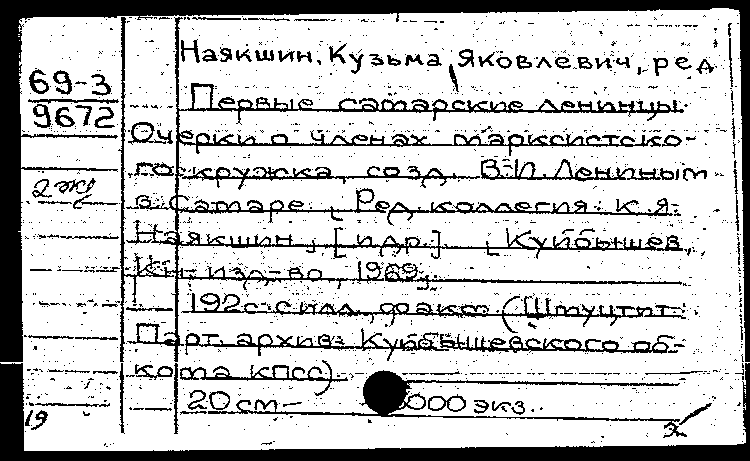 Наякшин, Кузьма Яковлевич, ред
69-3
9672
Первые самарские ленинцы.
Очерки о членах марксистско-
го кружка, созд. В.И. Лениным
2 жу
в Самаре. [Ред. коллегия: К.Я.
Наякшин, [и др.] [Куйбышев,
Кн. изд-во, 1969].
192 с. с илл., факс. (Институт
Парт. архив Куйбышевского об-
кома КПСС)
20 см —  000 экз.
19